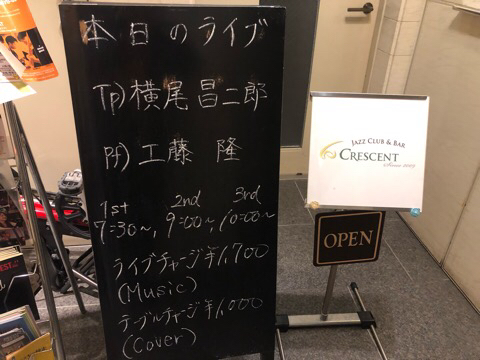 本日のライブ
Tp) 横尾昌二郎
Pf) 工藤 隆
1st 2nd 3rd
7:30〜, 9:00〜, 10:00〜
ライブチャージ ¥1,700
(Music)
テーブルチャージ ¥1,000
(Cover)
JAZZ CLUB & BAR
CRESCENT
OPEN